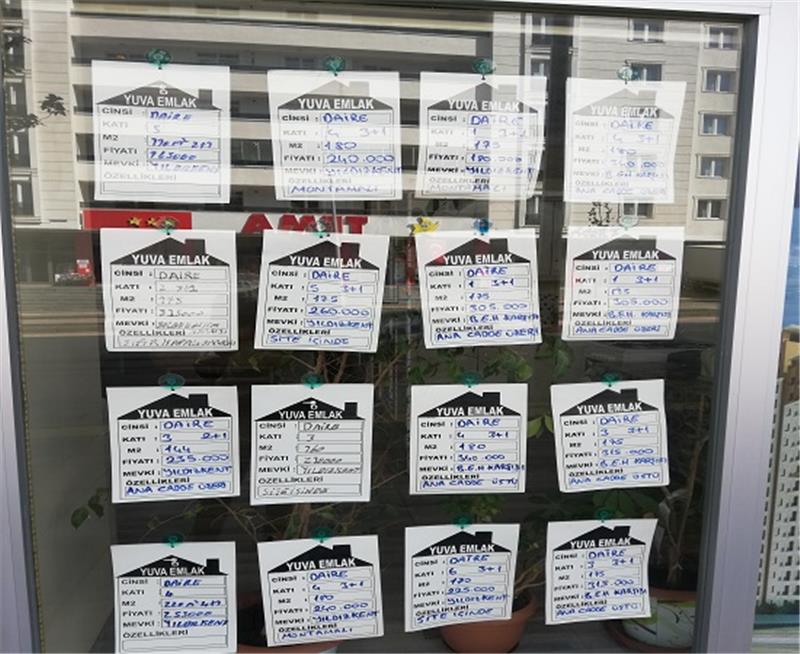 YUVA EMLAK
CİNSİ : DAİRE
KATI : 5
M2 :
FİYATI : 165000
MEVKİ : YILDIRKENT
ÖZELLİKLERİ
YUVA EMLAK
CİNSİ : DAİRE
KATI : 4 3+1
M2 : 180
FİYATI : 240.000
MEVKİ : YILDIZKENT
ÖZELLİKLERİ
MONTAMALI
YUVA EMLAK
CİNSİ : DAİRE
KATI : 1 3+1
M2 : 175
FİYATI : 180.000
MEVKİ : YILDIZKENT
ÖZELLİKLERİ
MONTAMALI
YUVA EMLAK
CİNSİ : DAİRE
KATI : 3+1
M2 : 180
FİYATI : 340.000
MEVKİ : B.E.H KARŞISI
ÖZELLİKLERİ
ANA CADDE ÜZERİ
AMIT
YUVA EMLAK
CİNSİ : DAİRE
KATI : 2
M2 : 175
FİYATI :
MEVKİ :
ÖZELLİKLERİ
YUVA EMLAK
CİNSİ : DAİRE
KATI : 5 3+1
M2 : 175
FİYATI : 260.000
MEVKİ : YILDIZKENT
ÖZELLİKLERİ
SİTE İÇİNDE
YUVA EMLAK
CİNSİ : DAİRE
KATI : 1 3+1
M2 : 175
FİYATI : 305.000
MEVKİ : B.E.H KARŞISI
ÖZELLİKLERİ
ANA CADDE ÜZERİ
YUVA EMLAK
CİNSİ : DAİRE
KATI : 1 3+1
M2 : 175
FİYATI : 305.000
MEVKİ : B.E.H KARŞISI
ÖZELLİKLERİ
ANA CADDE ÜZERİ
YUVA EMLAK
CİNSİ : DAİRE
KATI : 3 2+1
M2 : 144
FİYATI : 235.000
MEVKİ : YILDIZKENT
ÖZELLİKLERİ
ANA CADDE ÜZERİ
YUVA EMLAK
CİNSİ : DAİRE
KATI : 3
M2 : 160
FİYATI : 230000
MEVKİ : YILDIZKENT
ÖZELLİKLERİ
SİTE İÇİNDE
YUVA EMLAK
CİNSİ : DAİRE
KATI : 4 3+1
M2 : 180
FİYATI : 340.000
MEVKİ : B.E.H KARŞISI
ÖZELLİKLERİ
ANA CADDE ÜSTÜ
YUVA EMLAK
CİNSİ : DAİRE
KATI : 3 3+1
M2 : 175
FİYATI : 315.000
MEVKİ : B.E.H KARŞISI
ÖZELLİKLERİ
ANA CADDE ÜSTÜ
YUVA EMLAK
CİNSİ : DAİRE
KATI : 4
M2 :
FİYATI : 255000
MEVKİ : YILDIRKENT
ÖZELLİKLERİ
YUVA EMLAK
CİNSİ : DAİRE
KATI : 4 3+1
M2 : 180
FİYATI : 240.000
MEVKİ : YILDIZKENT
ÖZELLİKLERİ
MONTAMALI
YUVA EMLAK
CİNSİ : DAİRE
KATI : 6 3+1
M2 : 170
FİYATI : 225.000
MEVKİ : YILDIZKENT
ÖZELLİKLERİ
SİTE İÇİNDE
YUVA EMLAK
CİNSİ : DAİRE
KATI : 3 3+1
M2 : 175
FİYATI : 315.000
MEVKİ : B.E.H KARŞISI
ÖZELLİKLERİ
ANA CADDE ÜSTÜ